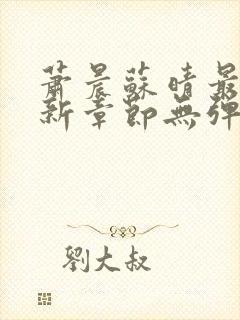 蕭晨蘇晴最
新章節無彈
劉大叔